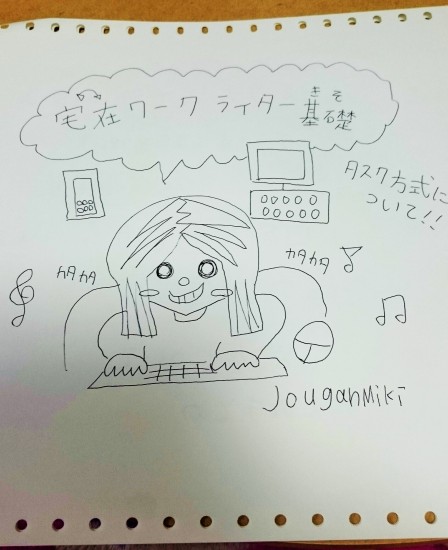 きそ
宅在ワーク ライター基礎
タスク方式に
ついて!!
カタカタ
カタカタ
JouganMiki